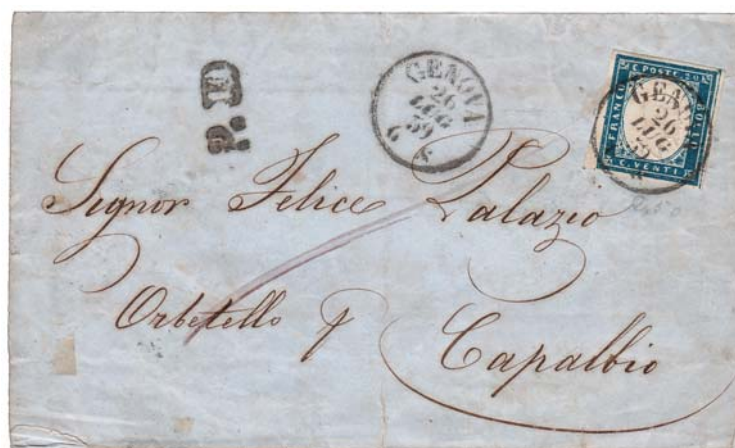 P.D
GENOVA
26
LUG
59
6 S
C. POSTE 20
FRANCO
BOLLO
C. VENTI
GENOVA
26
LUG
59
Signor Felice Palazio
Orbetello p
Capalbio